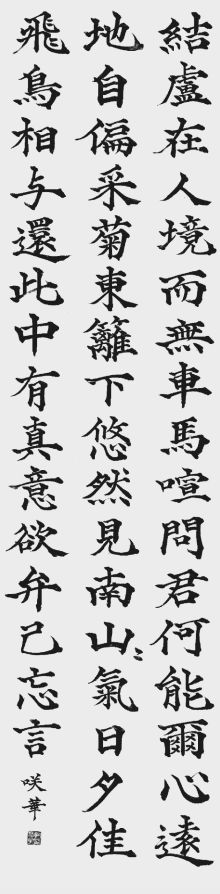 結盧在人境而無車馬喧問君何能爾心遠
地自偏采菊東籬下悠然見南山〻氣日夕佳
飛鳥相与還此中有真意欲弁己忘言
咲華